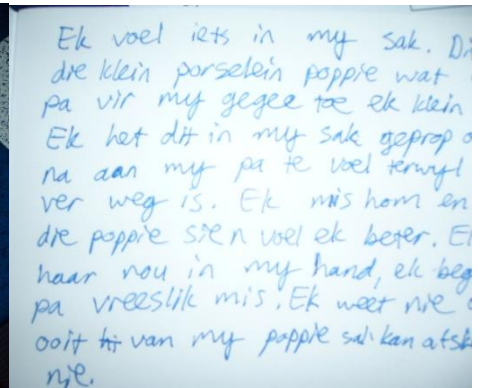 Ek voel iets in my sak.
die klein porselein poppie wat
pa vir my gegee toe ek klein
Ek het dit in my sak geprop
na aan my pa te voel terwyl
ver weg is. Ek mis hom en
die poppie sien voel ek beter.
haar nou in my hand, ek
pa vreeslik mis. Ek weet nie
ooit van my poppie sal kan
nie.